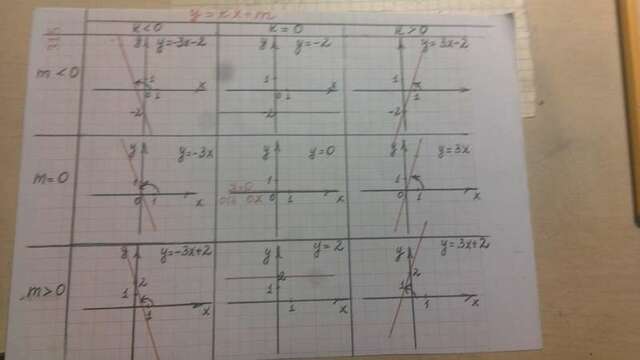 y=kx=m
k<0 k=0 k>0
m<0
y=-3x-2
y
1
x
0 1
-2
y=-2
y
1
x
0 1
-2
y=3x-2
1
x
1
-2
m=0
y=-3x
y
1
0 1 x
y=0
y
1
0 1 x
y=3x
y
1
0 1 x
m>0
y=-3x+2
y
2
1
1 x
y=2
y
2
1
1 x
y=3x+2
y
2
1
1 x